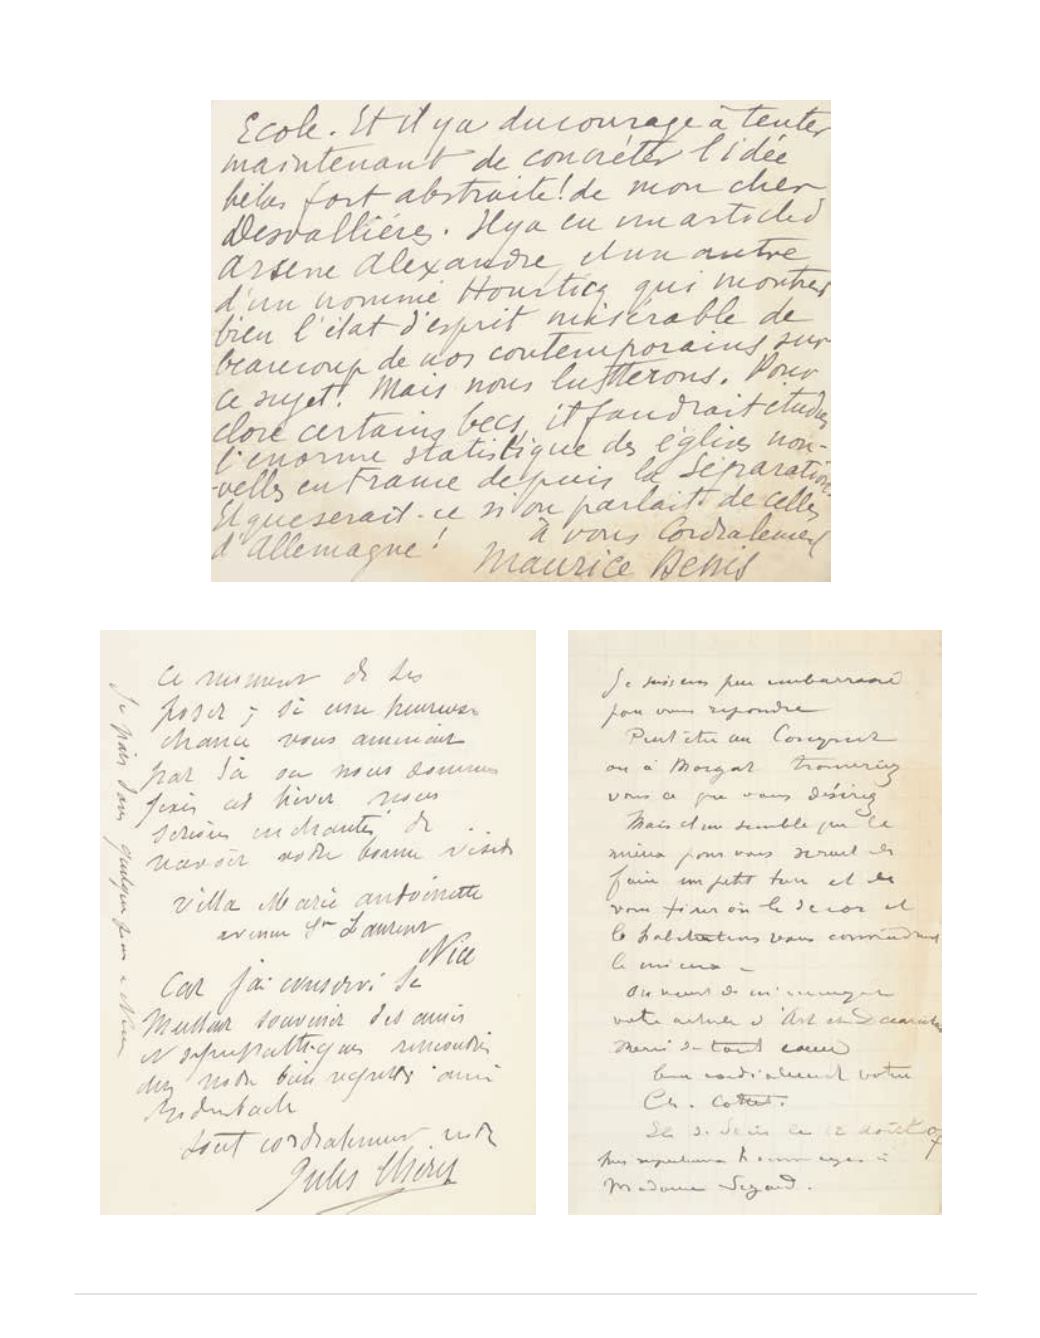 Ecole. Et il y a du courage à tenter
maintenant de concréter l'idée
hélas fort abstraite! de mon cher
Desvallières. Il y a eu un article d'
Arsène Alexandre, et un autre
d'un nommé Hourticq qui montrent
bien l'état d'esprit misérable de
beaucoup de nos contemporains sur
ce sujet! Mais nous lutterons. Pour
clore certains becs, il faudrait étudier
l'énorme statistique des églises nou-
-velles en France depuis la Séparation.
Et que serait-ce si on parlait de celles
d'Allemagne!
à vous Cordialement
Maurice Denis
ce moment de les
poser; si une heureuse
chance vous amenait
par là où nous sommes
fixés cet hiver nous
serions enchantés de
recevoir votre bonne visite
Villa Marie antoinette
avenue St Laurent
Nice
Car j'ai conservé le
meilleur souvenir des amis
si sympathiques rencontrés
chez notre bien regretté ami
Rodenbach
tout cordialement votre
Jules Chéret
Je pars dans quelques jours à
Je suis un peu embarrassé
pour vous répondre
Peut être au Conquet
ou à Morgat trouveriez
vous ce que vous désirez
Mais il me semble que le
mieux pour vous serait de
faire un petit tour et de
vous fixer où le décor et
le habitations vous conviendront
le mieux -
On vient de m'envoyer
votre article d'Art et Décoration
Merci de tout coeur
bien cordialement votre
Ch. Cottet.
le 12 août 07
Mes hommages à
Madame Segard.